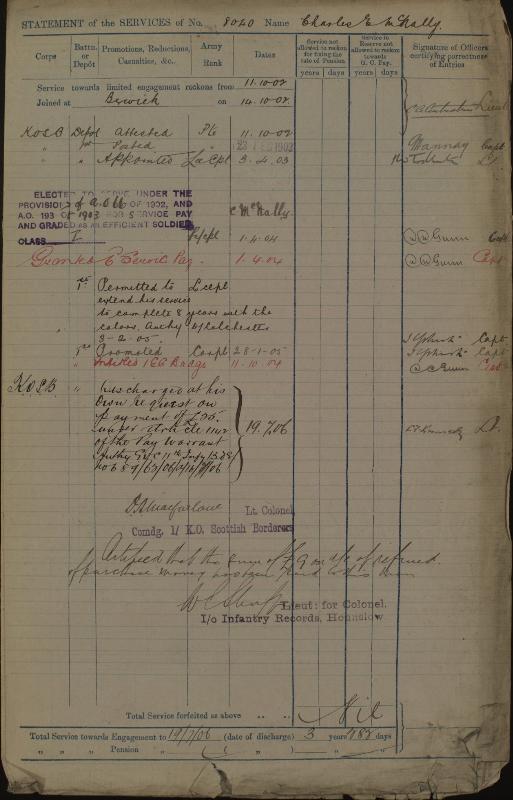 STATEMENT of the SERVICES of No. 8040 Name Charles E McNally.
Corps
Battn. or Depôt
Promotions, Reductions, Casualties, &c.
Army Rank
Dates
Service not allowed to reckon for fixing the rate of Pension
years days
Service in Reserve not allowed to reckon towards G. C. Pay.
years days
Signature of Officers certifying correctness of Entries
Service towards limited engagement reckons from 11.10.02
Joined at Berwick on 14.10.02
KOSB Depot Attested Pte 11.10.02
" Posted " 23 FEB 1902 Capt
" " Appointed L/Cpl 3.4.03 Lt
ELECTED TO SERVE UNDER THE
PROVISIONS of A.O. OF 1902, AND
A.O. 193 OF 1903 FOR SERVICE PAY
AND GRADED AS AN EFFICIENT SOLDIER
CLASS I
C McNally.
L/cpl 1.4.04 Gunn Capt
Granted Service Pay. 1.4.04 Gunn Capt
1st Permitted to L/cpl
extend his service
to complete 8 years with the
colors, Authy Colchester
3-2-05.
1st Promoted Corpl 28-1-05 Capt
" Badge 11.10.04 Gunn Capt
KOSB " Discharged at his
own request on
payment of £25
under Article 1142
of the Pay Warrant 19.7.06
Lt. Colonel
Comdg. 1/ K.O. Scottish Borderers
Certified that the sum of £9 of
purchase money refunded.
Lieut: for Colonel.
I/o Infantry Records, Hounslow
Total Service forfeited as above .. .. Nil
Total Service towards Engagement to 19/7/06 (date of discharge) 3 years 282 days
" " Pension " ( " ) " "